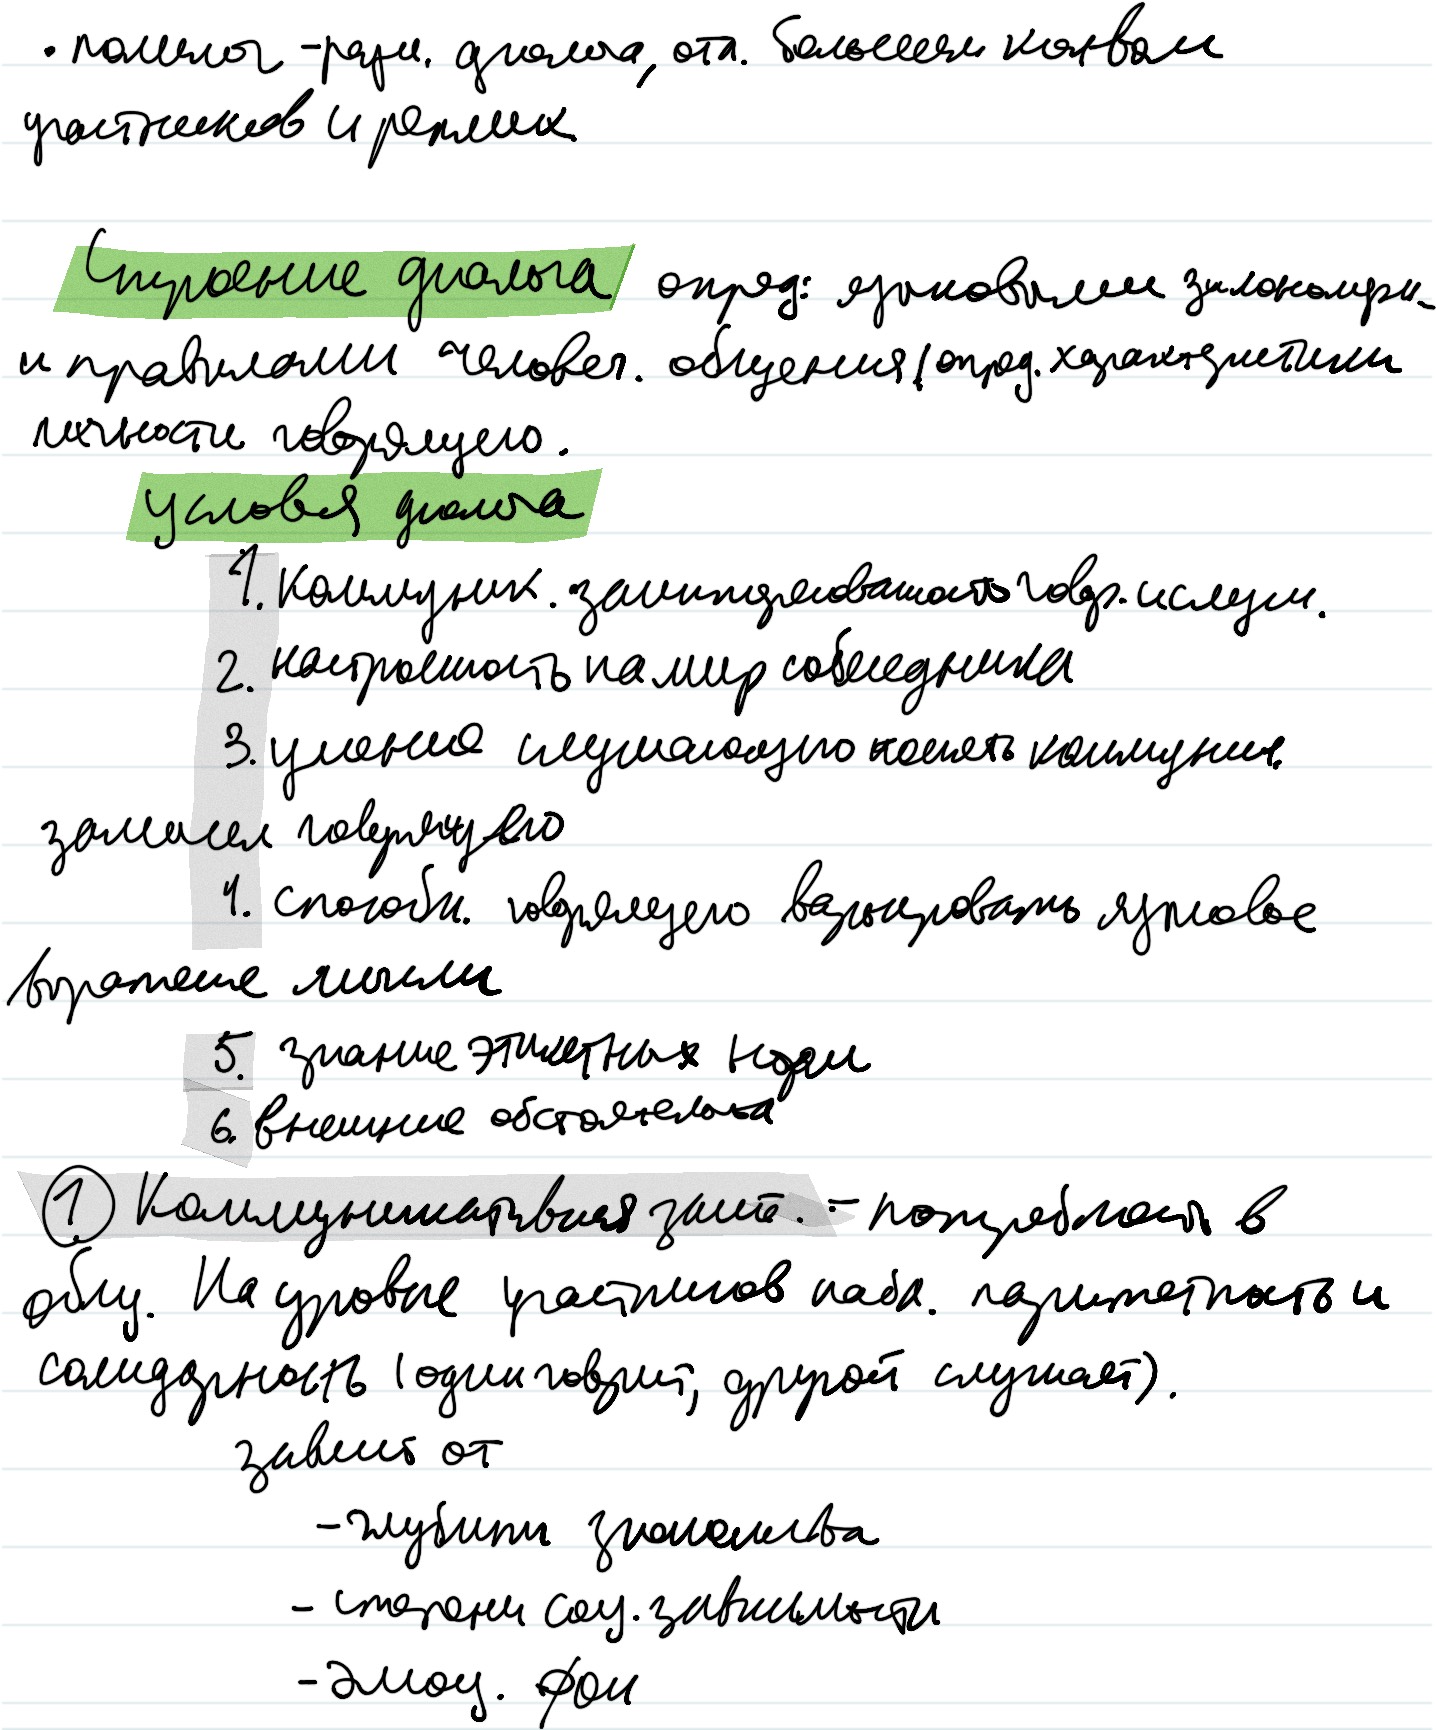 • полилог - разн. диалога, отл. большим кол-вом
участников и реплик
Строение диалога опред: языковыми закономерн.
и правилами человеч. общения, опред. характеристики
личности говорящего.
Условия диалога
1. коммуник. заинтересованность говор. и слуш.
2. настроенность на мир собеседника
3. умение слушающего понять коммуник.
замысел говорящего
4. способн. говорящего варьировать языковое
выражение мысли
5. знание этикетных норм
6. внешние обстоятельства
1. Коммуникативная заинт. = потребность в
общ. На уровне участников набл. паритетность и
солидарность (один говорит, другой слушает).
зависит от
- глубины знакомства
- степени соц. зависимости
- эмоц. фон